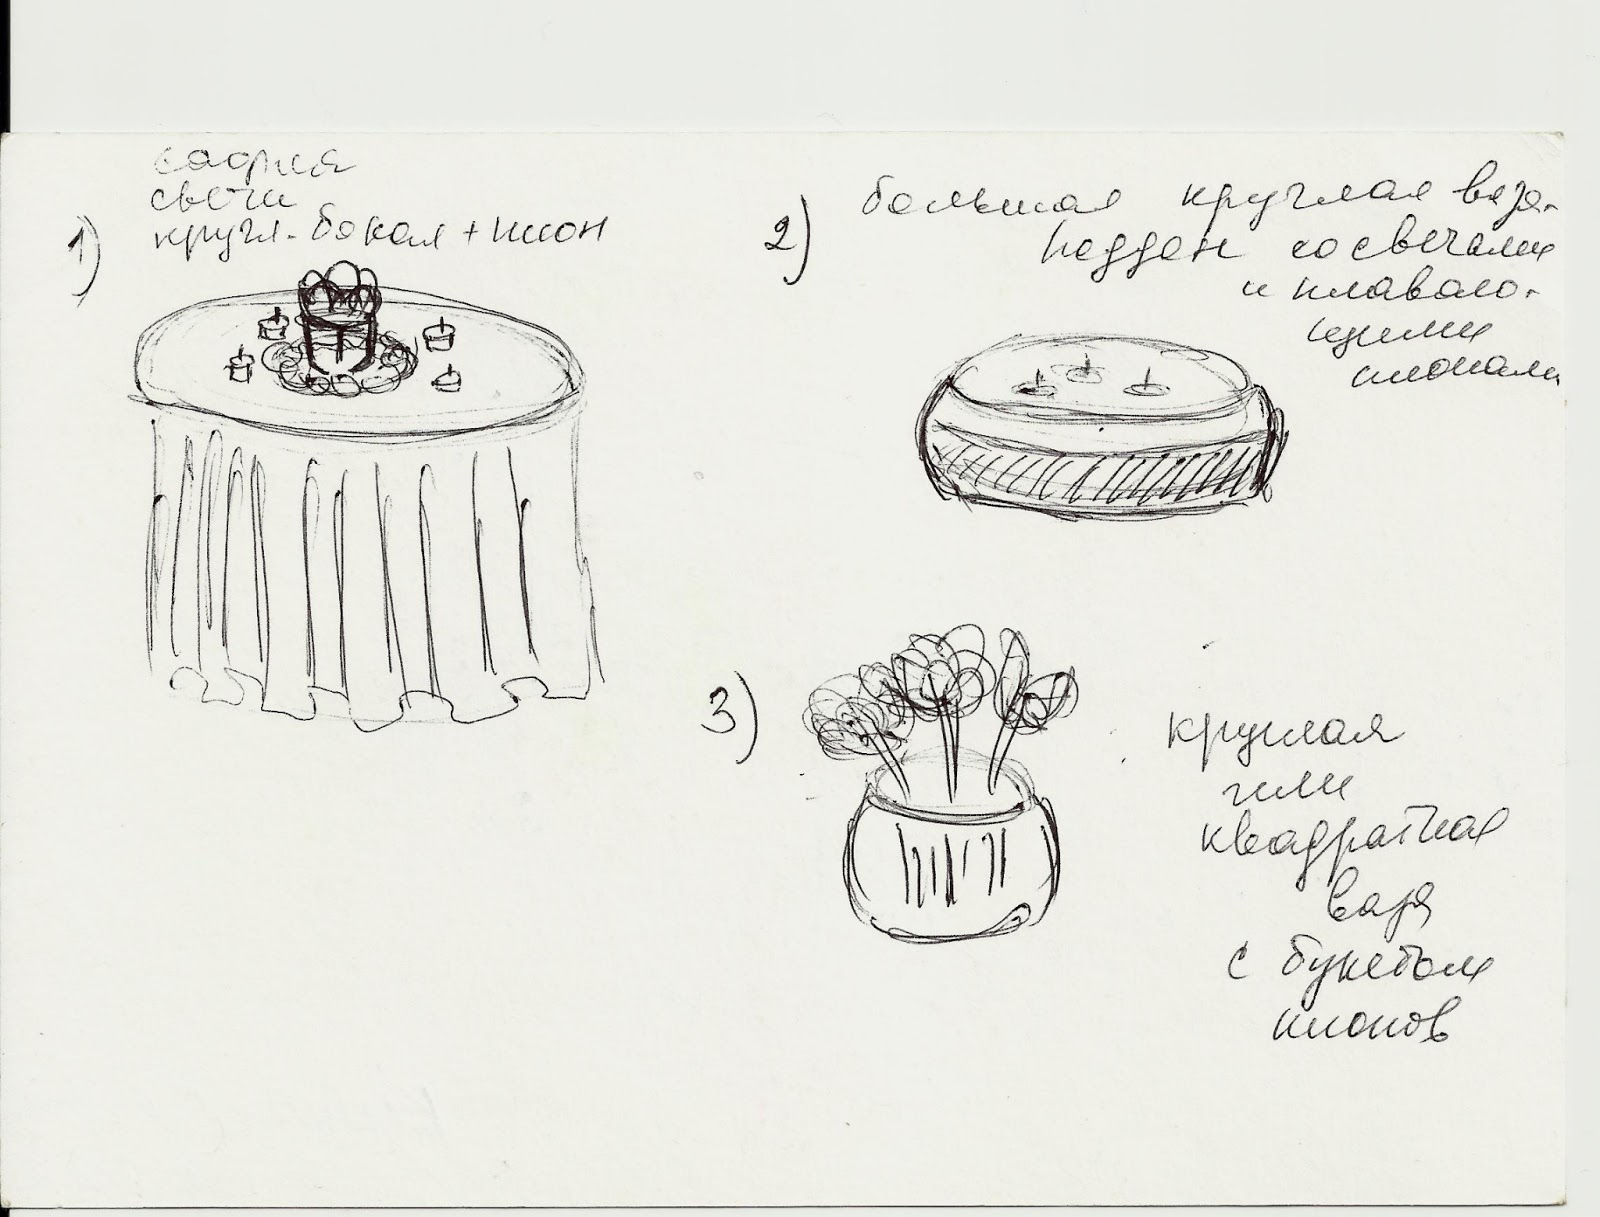 1)
свечи
кругл. бокал + пион
2)
большая круглая ваза-
поддон со свечами
и плаваю-
щими
пионами
3)
круглая
или
квадратная
ваза
с букетом
пионов